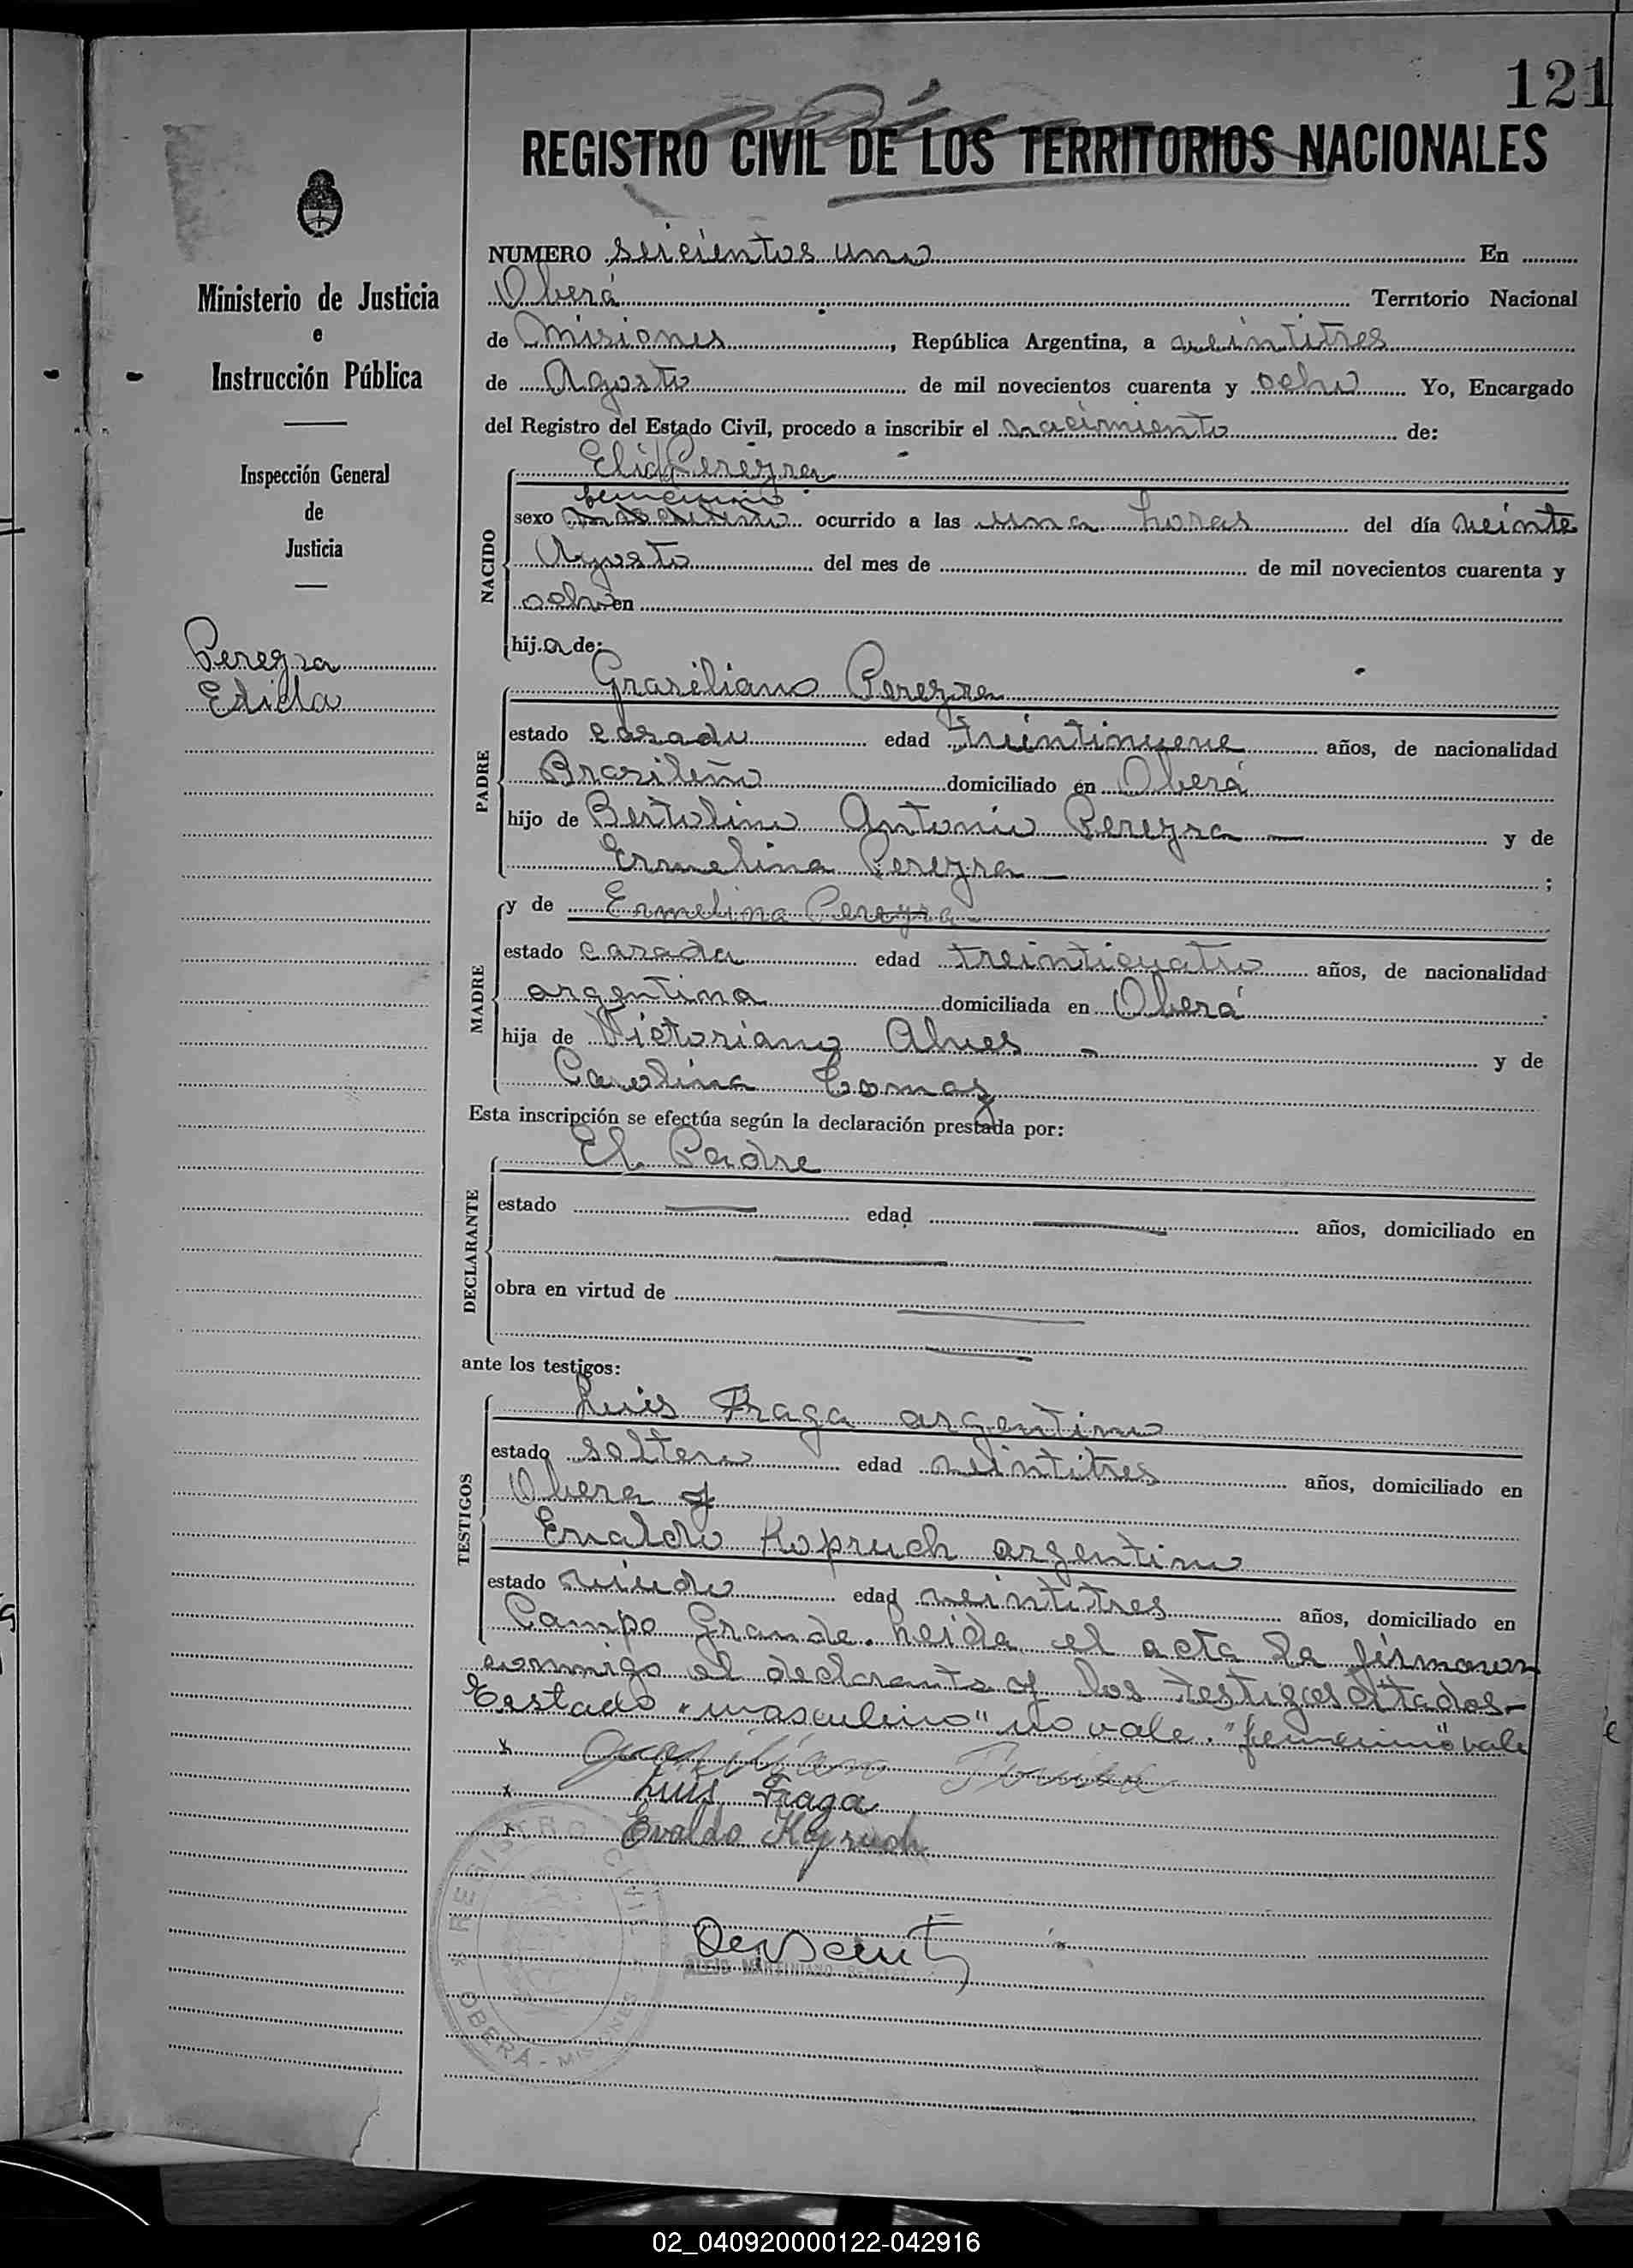 121
REGISTRO CIVIL DE LOS TERRITORIOS NACIONALES
Ministerio de Justicia
e
Instrucción Pública
Inspección General
de
Justicia
Pereyra
Elida
NUMERO seicientos uno En
Oberá Territorio Nacional
de Misiones, República Argentina, a veintitres
de Agosto de mil novecientos cuarenta y ocho Yo, Encargado
del Registro del Estado Civil, procedo a inscribir el nacimiento de:
NACIDO
Pereyra
femenino
sexo masculino ocurrido a las una horas del día veinte
Agosto del mes de de mil novecientos cuarenta y
ocho en
hija de:
PADRE
Grasiliano Pereyra
estado casado edad treintinueve años, de nacionalidad
Brasileño domiciliado en Oberá
hijo de Bertolino Antonio Pereyra y de
Ermelina Pereyra ;
MADRE
y de Ermelina Pereyra
estado casada edad treinticuatro años, de nacionalidad
argentina domiciliada en Oberá
hija de Victoriano Alves y de
Carolina
Esta inscripción se efectúa según la declaración prestada por:
DECLARANTE
El Padre
estado edad años, domiciliado en
obra en virtud de
ante los testigos:
TESTIGOS
Luis Fraga argentino
estado soltero edad veintitres años, domiciliado en
Obera y
Evaldo Kopruch argentino
estado viudo edad veintitres años, domiciliado en
Campo Grande. Leida el acta la firmaron
conmigo el declarante y los testigos citados-
Testado "masculino" no vale. "femenino" vale
x
x Luis Fraga
x Evaldo Kopruch
REGISTRO CIVIL
OBERÁ - MISIONES
02_040920000122-042916